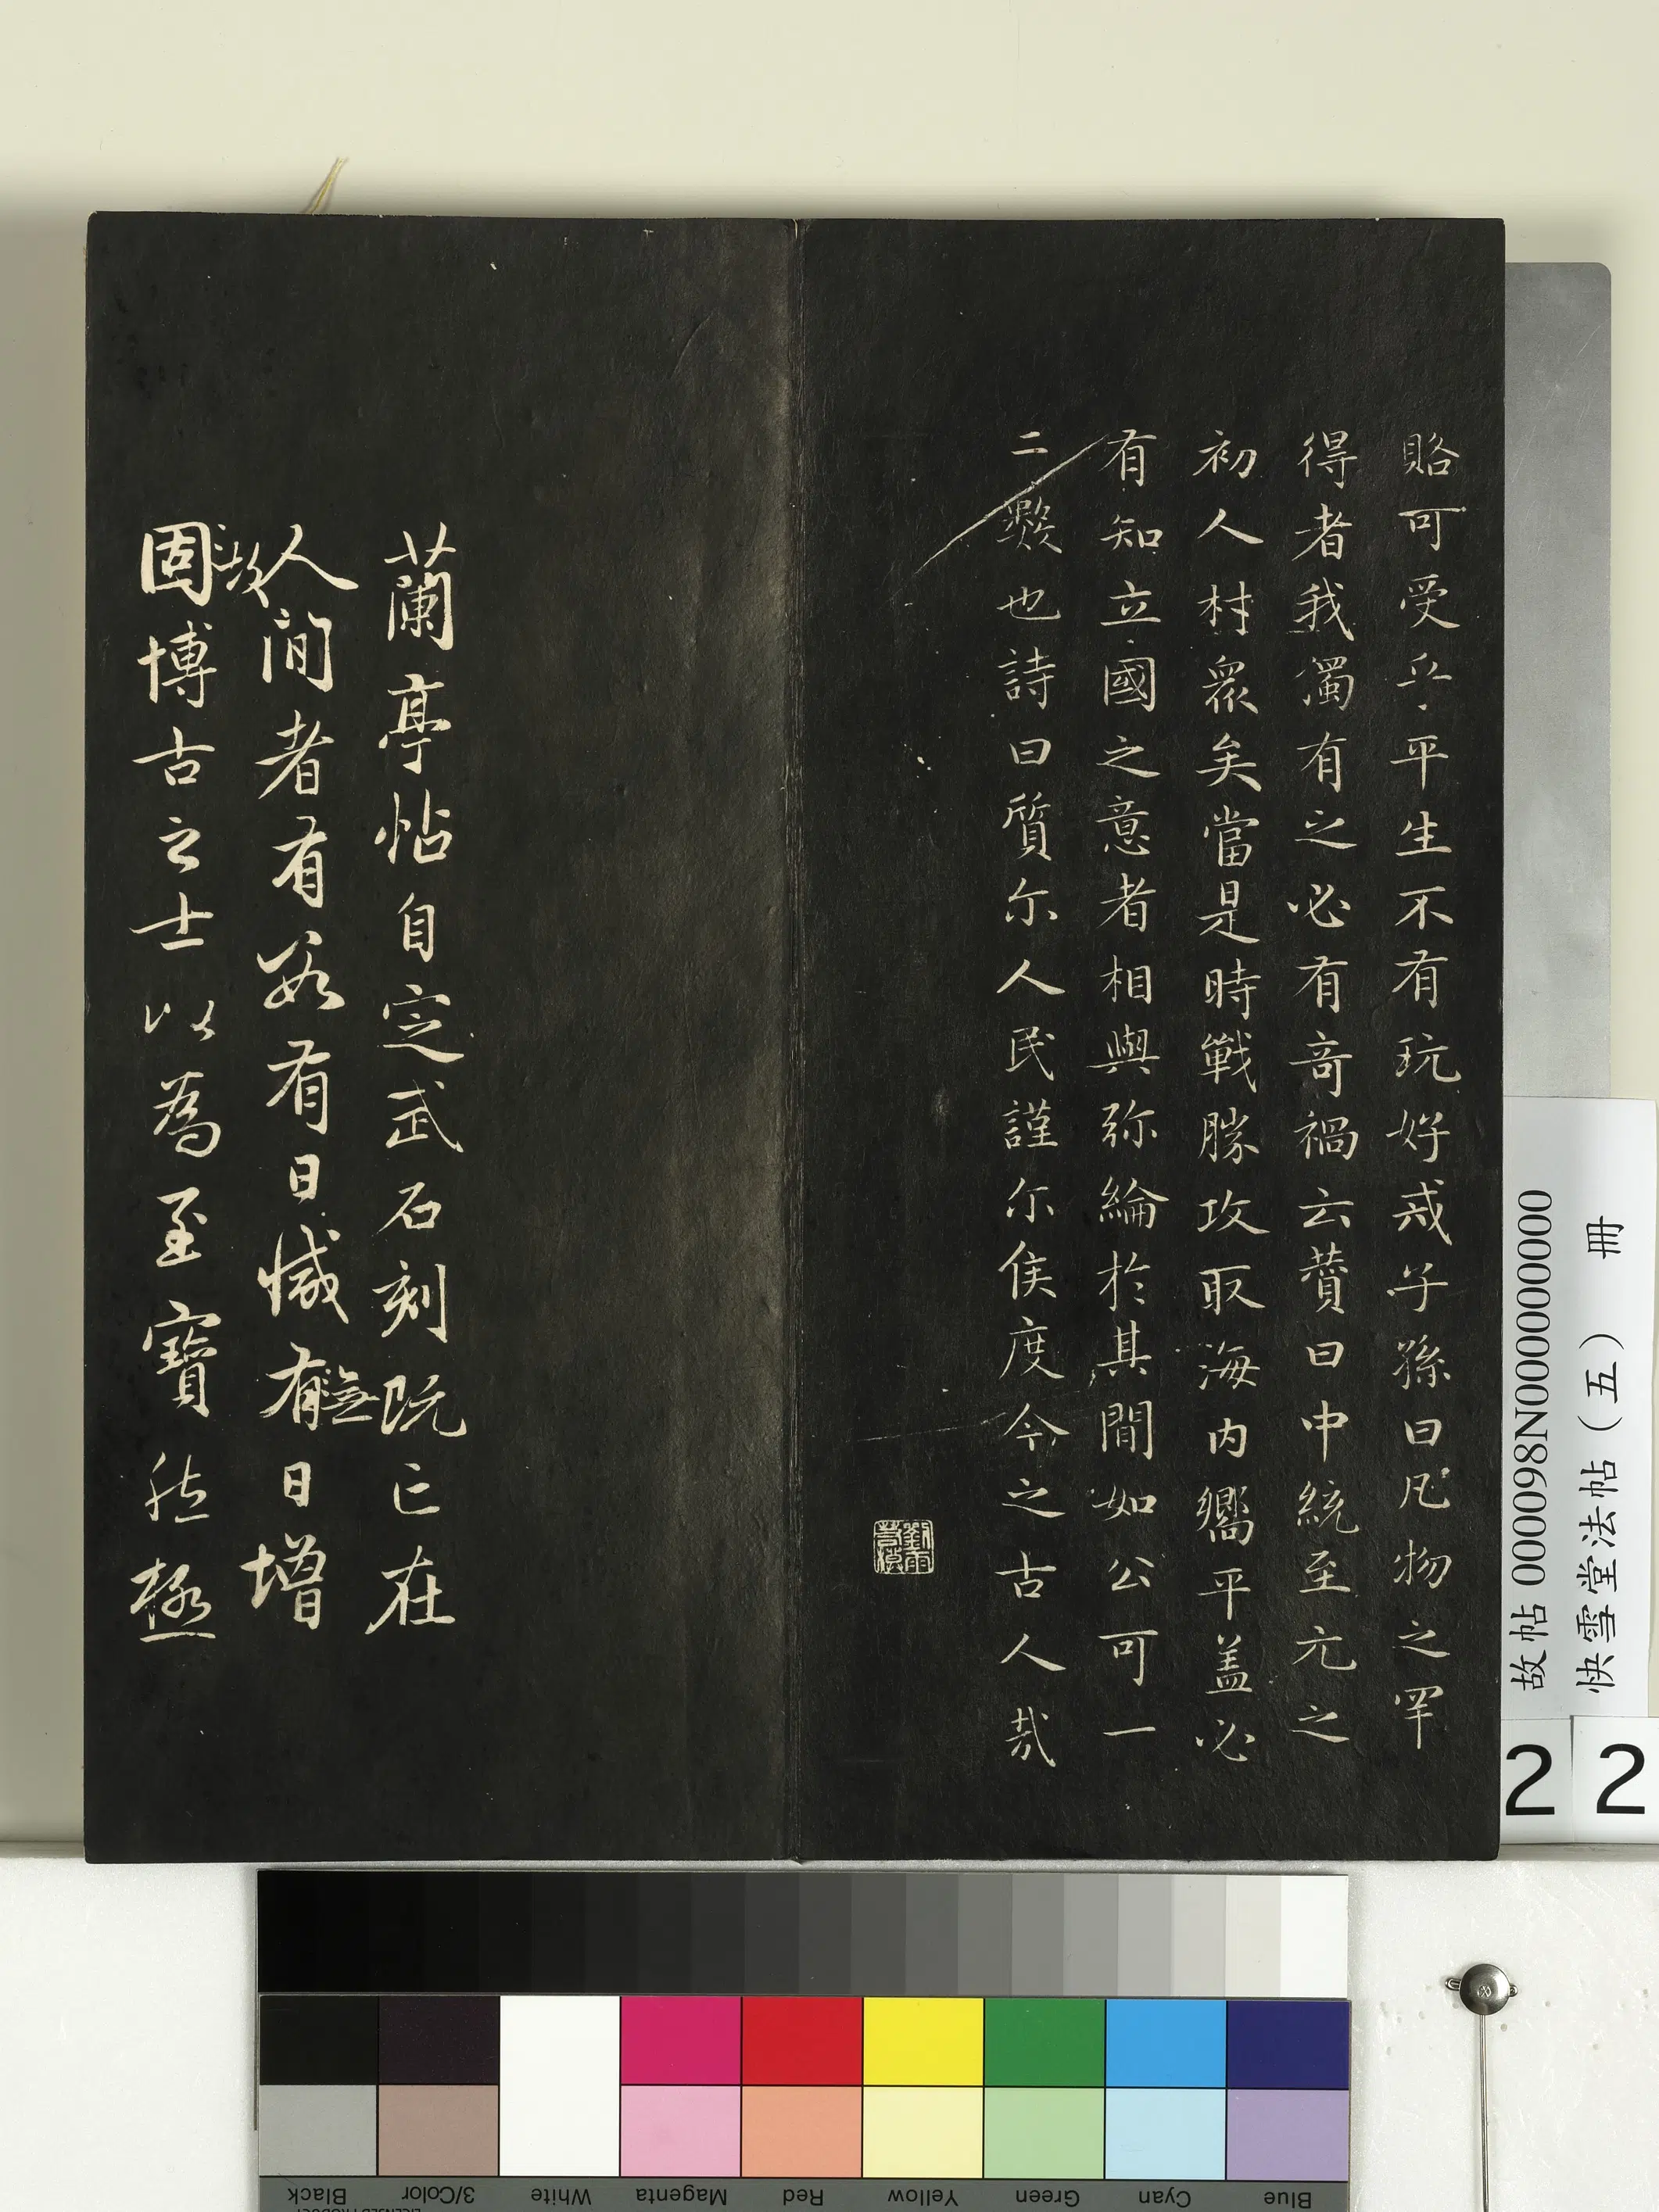 賂可受乎平生不有玩好戒子孫曰凡物之罕
得者我獨有之必有奇禍云贊曰中統至元之
初人材衆矣當是時戰勝攻取海内嚮平盖必
有知立國之意者相與弥綸於其間如公可一
二數也詩曰質尔人民謹尔侯度今之古人哉
劉雨若摸
蘭亭帖自定武石刻既亡在
人間者有數有日減有無日增
故
固博古之士以為至寶然極
故帖 000098N000000000
快雪堂法帖（五） 冊
2 2
Black
3/Color
White
Magenta
Red
Yellow
Green
Cyan
Blue